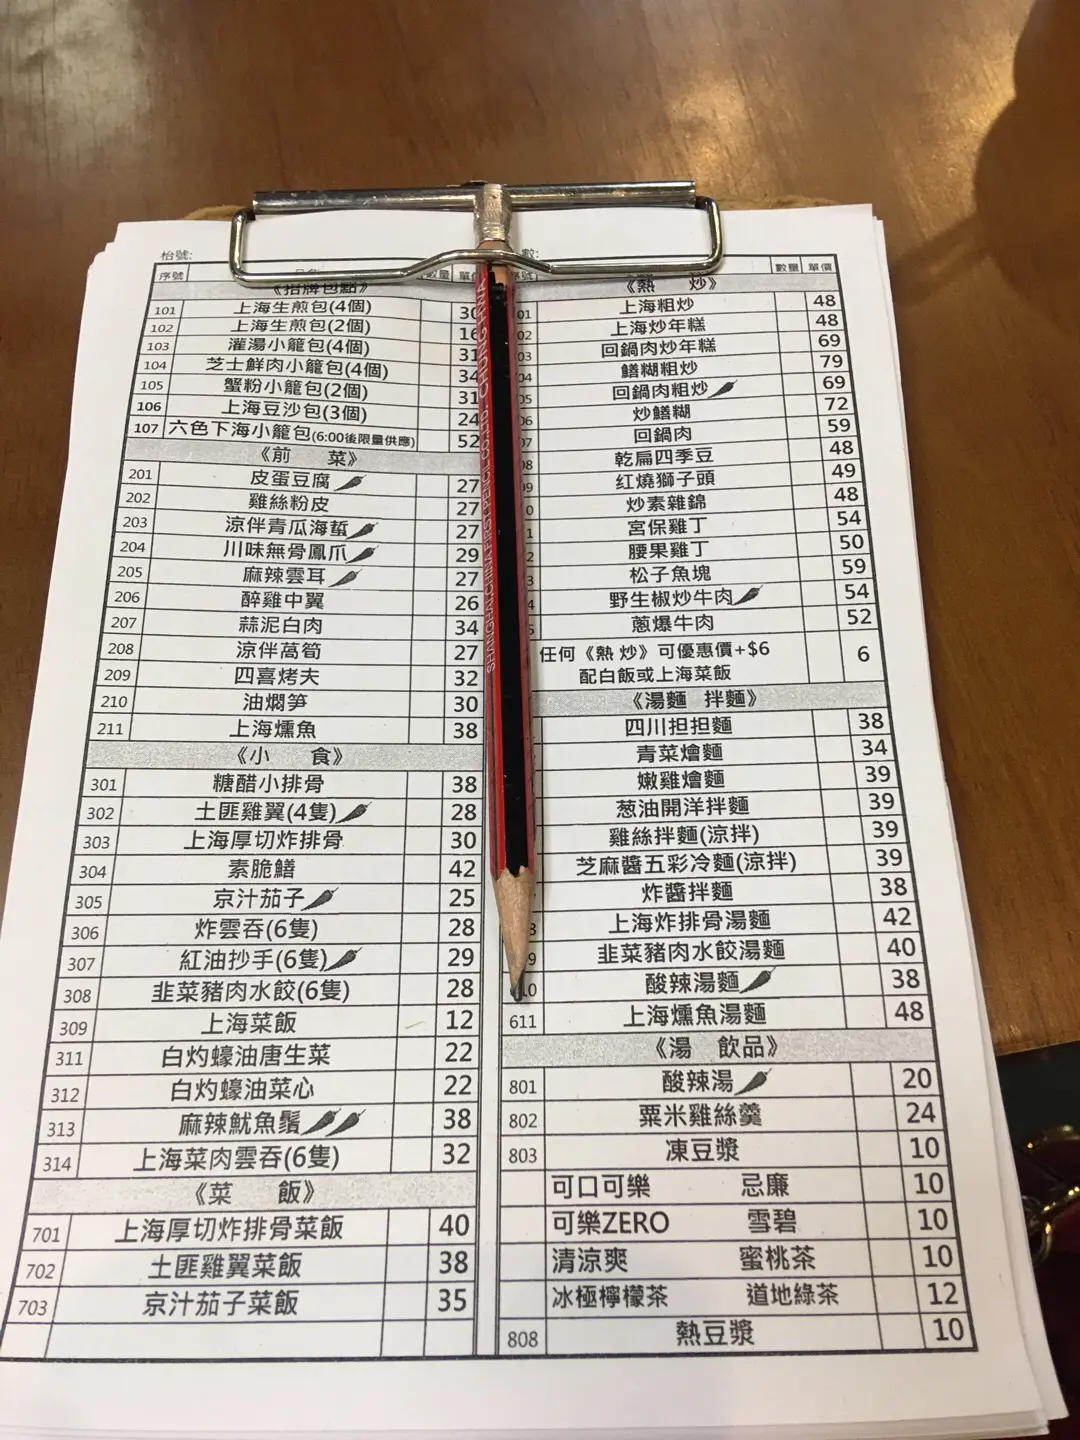 枱號:
數:
序號 數量 單價
《招牌包點》
101 上海生煎包(4個) 30
102 上海生煎包(2個) 16
103 灌湯小籠包(4個) 31
104 芝士鮮肉小籠包(4個) 34
105 蟹粉小籠包(2個) 31
106 上海豆沙包(3個) 24
107 六色下海小籠包(6:00後限量供應) 52
《前 菜》
201 皮蛋豆腐 27
202 雞絲粉皮 27
203 涼伴青瓜海蜇 27
204 川味無骨鳳爪 29
205 麻辣雲耳 27
206 醉雞中翼 26
207 蒜泥白肉 34
208 涼伴萵筍 27
209 四喜烤夫 32
210 油燜笋 30
211 上海燻魚 38
《小 食》
301 糖醋小排骨 38
302 土匪雞翼(4隻) 28
303 上海厚切炸排骨 30
304 素脆鱔 42
305 京汁茄子 25
306 炸雲吞(6隻) 28
307 紅油抄手(6隻) 29
308 韭菜豬肉水餃(6隻) 28
309 上海菜飯 12
311 白灼蠔油唐生菜 22
312 白灼蠔油菜心 22
313 麻辣魷魚鬚 38
314 上海菜肉雲吞(6隻) 32
《菜 飯》
701 上海厚切炸排骨菜飯 40
702 土匪雞翼菜飯 38
703 京汁茄子菜飯 35
號 數量 單價
《熱 炒》
01 上海粗炒 48
02 上海炒年糕 48
03 回鍋肉炒年糕 69
04 鱔糊粗炒 79
05 回鍋肉粗炒 69
06 炒鱔糊 72
07 回鍋肉 59
08 乾扁四季豆 48
09 红燒獅子頭 49
0 炒素雜錦 48
1 宮保雞丁 54
2 腰果雞丁 50
3 松子魚塊 59
4 野生椒炒牛肉 54
5 蔥爆牛肉 52
任何《熱 炒》可優惠價+$6 6
配白飯或上海菜飯
《湯麵 拌麵》
四川担担麵 38
青菜燴麵 34
嫩雞燴麵 39
葱油開洋拌麵 39
雞絲拌麵(涼拌) 39
芝麻醬五彩冷麵(涼拌) 39
炸醬拌麵 38
8 上海炸排骨湯麵 42
9 韭菜豬肉水餃湯麵 40
10 酸辣湯麵 38
611 上海燻魚湯麵 48
《湯 飲品》
801 酸辣湯 20
802 粟米雞絲羹 24
803 凍豆漿 10
可口可樂 忌廉 10
可樂ZERO 雪碧 10
清涼爽 蜜桃茶 10
冰極檸檬茶 道地綠茶 12
808 熱豆漿 10
SHANGHAI CHINA FIRST PENCIL CO.LTD. CHUNGHWA